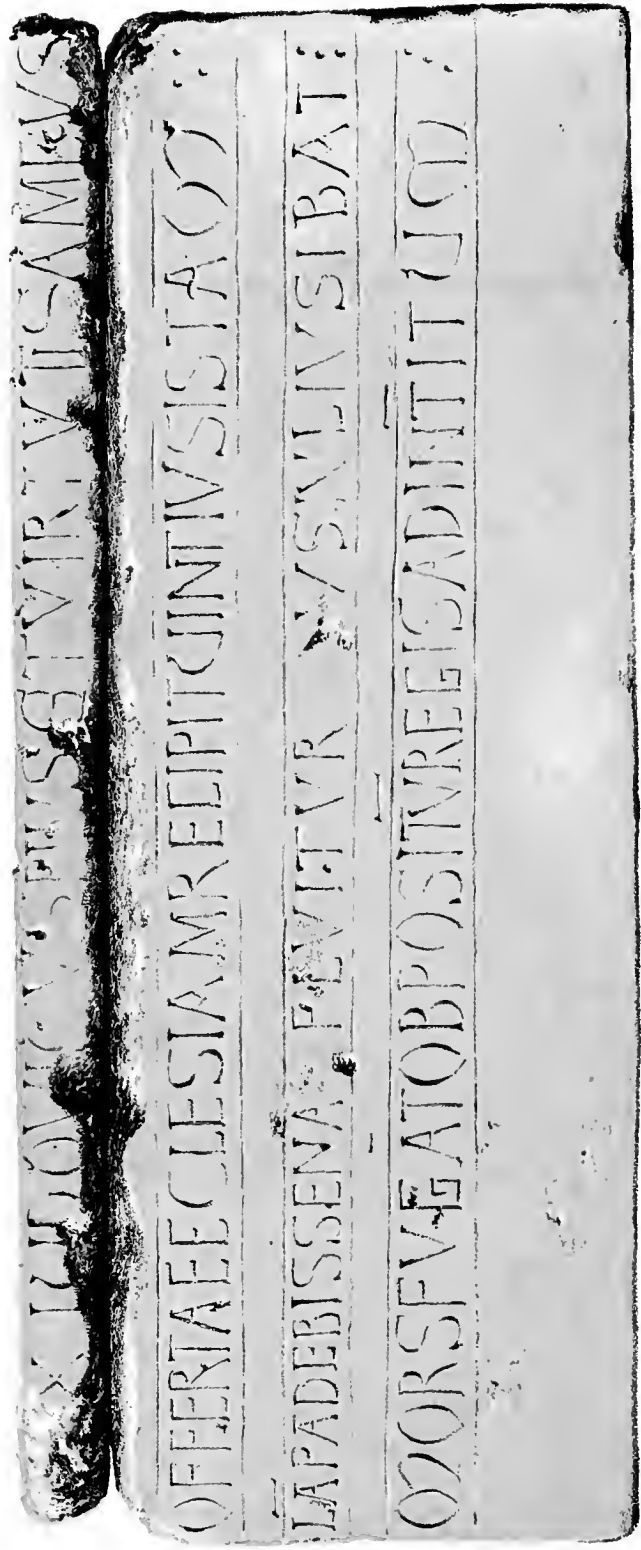 X HLDOVICVSPIVSETVIRTVTISAMICVS
OFFERTAECCLESIAMRECIPITUINTIVSISTAM :
LAPADEBISSENA FLVITVR VSIVLIVSIBAT :
MORSFVGATOBPOSITVREGISADINTITUM :